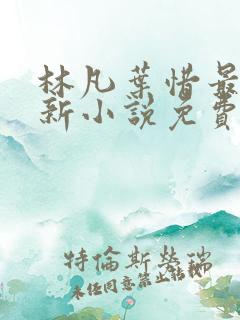 林凡葉惜最
新小說免費
特倫斯勞瑞
未经同意禁止转载